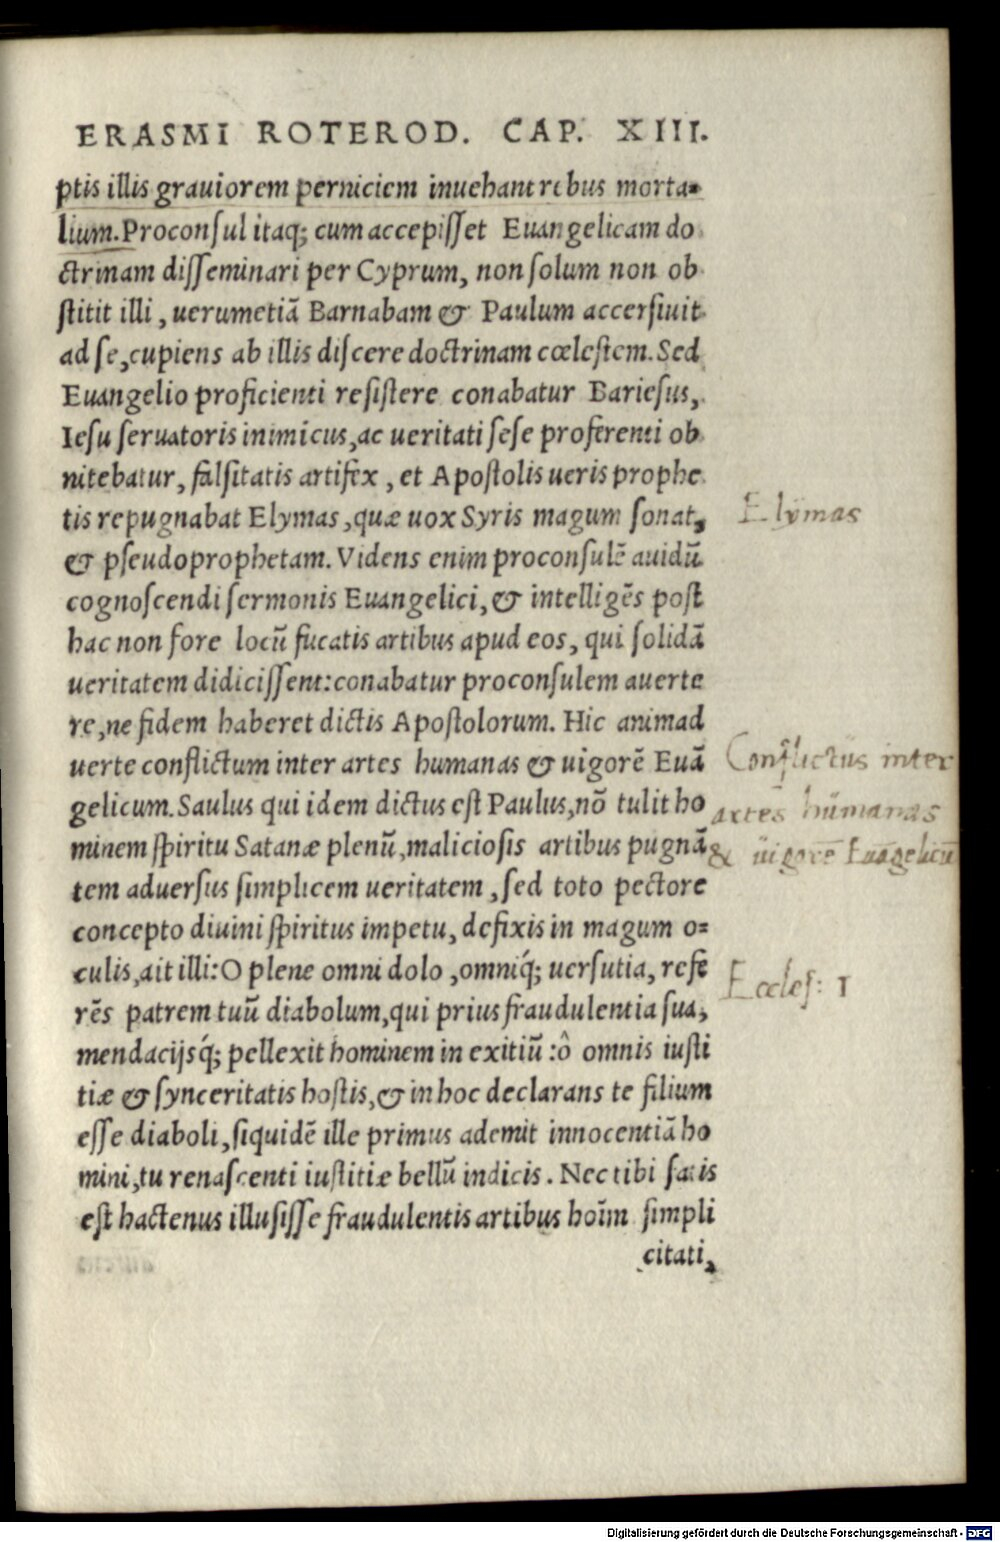 ERASMI ROTEROD. CAP. XIII.
ptis illis grauiorem perniciem inuehant rebus morta=
lium. Proconsul itaq; cum accepisset Euangelicam do
ctrinam disseminari per Cyprum, non solum non ob
stitit illi, uerumetiã Barnabam & Paulum accersiuit
ad se, cupiens ab illis discere doctrinam cœlestem. Sed
Euangelio proficienti resistere conabatur Bariesus,
Iesu seruatoris inimicus, ac ueritati sese proferenti ob
nitebatur, falsitatis artifex, et Apostolis ueris prophe
tis repugnabat Elymas, quæ uox Syris magum sonat,
Elymas
& pseudoprophetam. Videns enim proconsulẽ auidũ
cognoscendi sermonis Euangelici, & intelligẽs post
hac non fore locũ fucatis artibus apud eos, qui solidã
ueritatem didicissent: conabatur proconsulem auerte
re, ne fidem haberet dictis Apostolorum. Hic animad
uerte conflictum inter artes humanas & uigorẽ Euã
Conflictus inter
gelicum. Saulus qui idem dictus est Paulus, nõ tulit ho
artes humanas
minem spiritu Satanæ plenũ, maliciosis artibus pugnã
& uigorẽ Euãgelicũ
tem aduersus simplicem ueritatem, sed toto pectore
concepto diuini spiritus impetu, defixis in magum o=
culis, ait illi: O plene omni dolo, omniq́; uersutia, refe
Eccles: 1
rẽs patrem tuũ diabolum, qui prius fraudulentia sua,
mendacijsq́; pellexit hominem in exitiũ: ô omnis iusti
tiæ & synceritatis hostis, & in hoc declarans te filium
esse diaboli, siquidẽ ille primus ademit innocentiã ho
mini, tu renascenti iustitiæ bellũ indicis. Nec tibi satis
est hactenus illusisse fraudulentis artibus hoĩm simpli
citati,
Digitalisierung gefördert durch die Deutsche Forschungsgemeinschaft - DFG